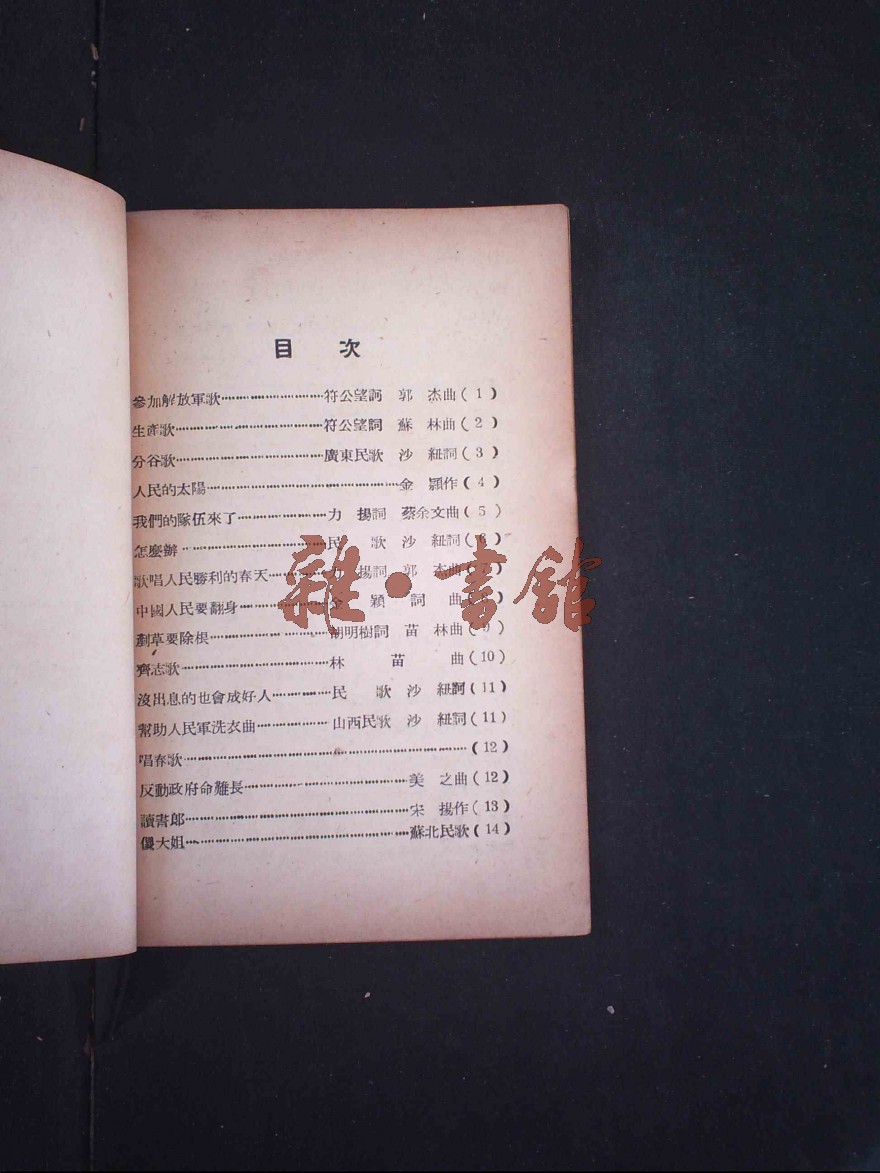 目 次
參加解放軍歌…………………符公望詞 郭 杰曲（1）
生產歌…………………………符公望詞 蘇 林曲（2）
分谷歌…………………………廣東民歌 沙 紐詞（3）
人民的太陽……………………………………金 頴作（4）
我們的隊伍來了………………力 揚詞 蔡余文曲（5）
怎麼辦…………………………民 歌 沙 紐詞（6）
歌唱人民勝利的春天…………力 揚詞 郭 杰曲（7）
中國人民要翻身………………金 穎 詞 曲
剷草要除根……………………胡明樹詞 苗 林曲（9）
齊志歌…………………………林 苗 曲（10）
沒出息的也會成好人…………民 歌 沙 紐詞（11）
幫助人民軍洗衣曲……………山西民歌 沙 紐詞（11）
唱春歌……………………………………………………（12）
反動政府命難長………………………………美 之曲（12）
讀書郎…………………………………………宋 揚作（13）
傻大姐…………………………………………蘇北民歌（14）
雜·書館